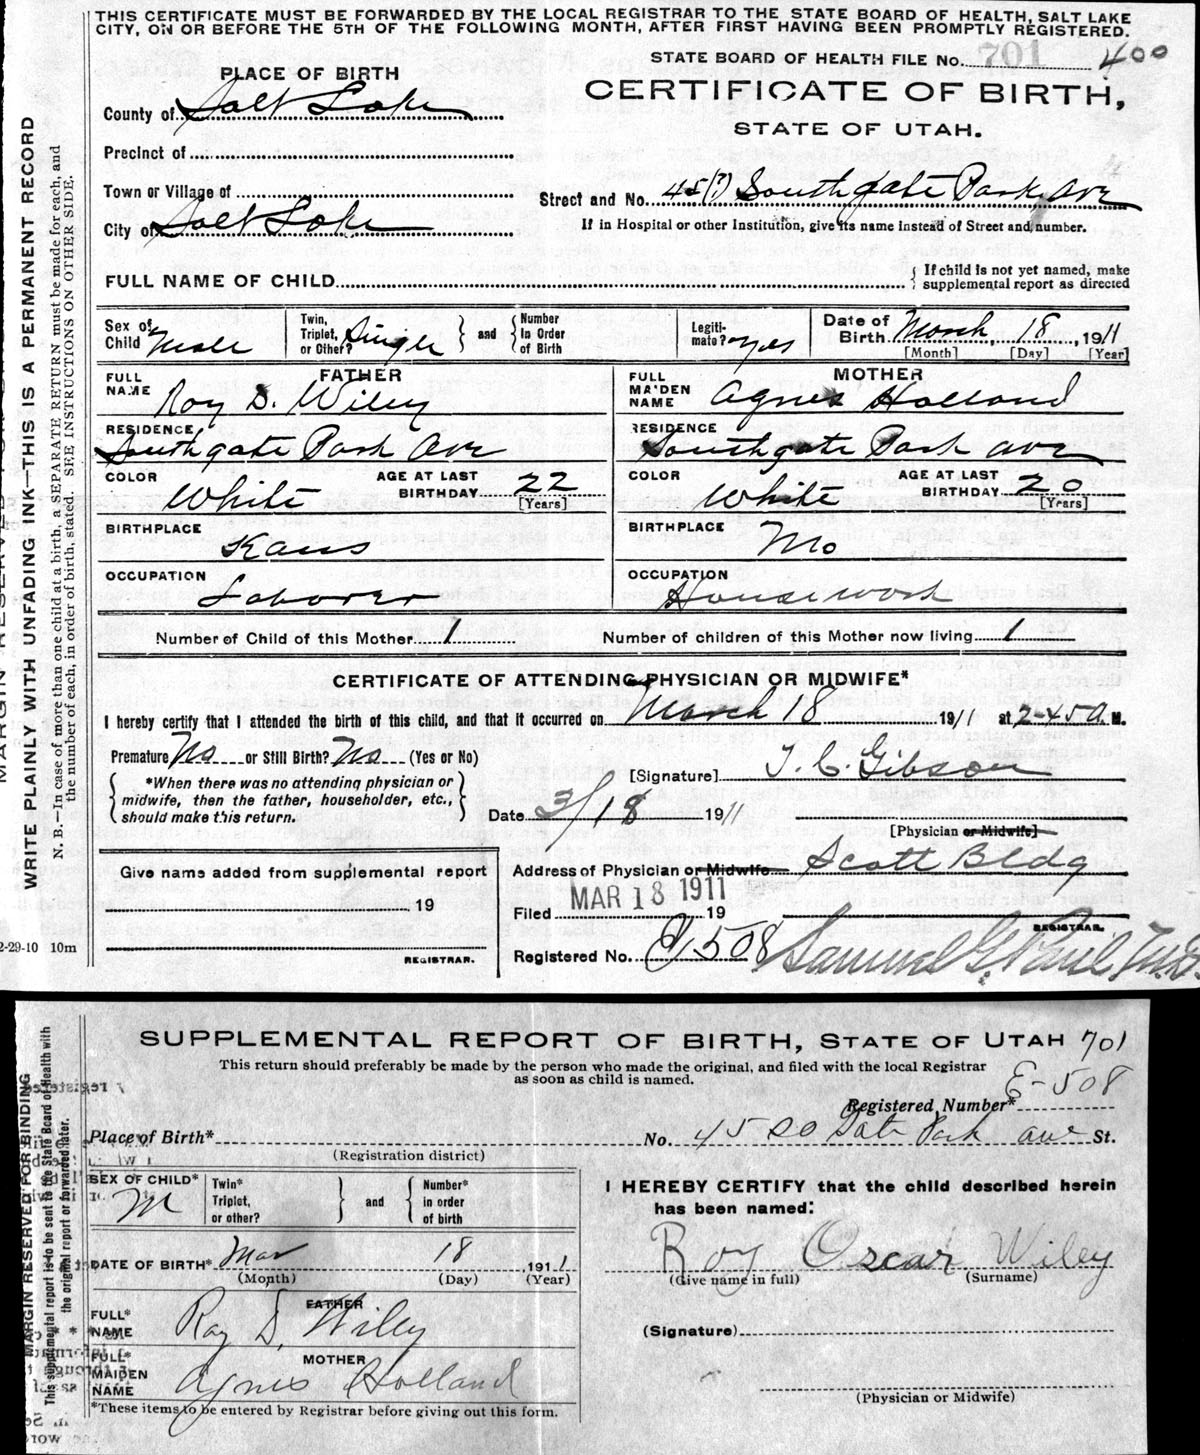 THIS CERTIFICATE MUST BE FORWARDED BY THE LOCAL REGISTRAR TO THE STATE BOARD OF HEALTH, SALT LAKE
CITY, ON OR BEFORE THE 5TH OF THE FOLLOWING MONTH, AFTER FIRST HAVING BEEN PROMPTLY REGISTERED.
STATE BOARD OF HEALTH FILE No. 701 400
PLACE OF BIRTH
CERTIFICATE OF BIRTH,
STATE OF UTAH.
County of Salt Lake
Precinct of
Town or Village of
City of Salt Lake
Street and No. 45(?) Southgate Park Ave
If in Hospital or other Institution, give its name instead of Street and number.
FULL NAME OF CHILD
If child is not yet named, make
supplemental report as directed
Sex of Child Male
Twin, Triplet, or Other? Single and Number in Order of Birth
Legitimate? Yes
Date of Birth March 18, 1911
[Month] [Day] [Year]
FATHER
FULL NAME Roy S. Wiley
RESIDENCE Southgate Park Ave
COLOR White AGE AT LAST BIRTHDAY 22 [Years]
BIRTHPLACE Kans
OCCUPATION Laborer
MOTHER
FULL MAIDEN NAME Agnes Holland
RESIDENCE Southgate Park Ave
COLOR White AGE AT LAST BIRTHDAY 20 [Years]
BIRTHPLACE Mo
OCCUPATION Housework
Number of Child of this Mother 1 Number of children of this Mother now living 1
CERTIFICATE OF ATTENDING PHYSICIAN OR MIDWIFE*
I hereby certify that I attended the birth of this child, and that it occurred on March 18 1911 at 2-45 A. M.
Premature No or Still Birth? No (Yes or No)
*When there was no attending physician or
midwife, then the father, householder, etc.,
should make this return.
[Signature] T. C. Gibson
Date 3/18 1911
[Physician or Midwife]
Give name added from supplemental report
19
REGISTRAR.
Address of Physician or Midwife Scott Bldg
Filed MAR 18 1911 19
REGISTRAR.
Registered No. 508 Samuel G. Paul M.D.
MARGIN RESERVED FOR BINDING
WRITE PLAINLY WITH UNFADING INK—THIS IS A PERMANENT RECORD
N. B.—In case of more than one child at a birth, a SEPARATE RETURN must be made for each, and
the number of each, in order of birth, stated. SEE INSTRUCTIONS ON OTHER SIDE.
2-29-10 10m
SUPPLEMENTAL REPORT OF BIRTH, STATE OF UTAH 701
This return should preferably be made by the person who made the original, and filed with the local Registrar
as soon as child is named.
Registered Number* E-508
Place of Birth* No. 45 Gate Park ave St.
(Registration district)
SEX OF CHILD* M
Twin* Triplet, or other? and Number* in order of birth
DATE OF BIRTH* Mar 18 1911
(Month) (Day) (Year)
FATHER
FULL* NAME Roy S. Wiley
MOTHER
FULL* MAIDEN NAME Agnes Holland
*These items to be entered by Registrar before giving out this form.
I HEREBY CERTIFY that the child described herein
has been named:
Roy Oscar Wiley
(Give name in full) (Surname)
(Signature)
(Physician or Midwife)
MARGIN RESERVED FOR BINDING
This supplemental report is to be sent to the State Board of Health with
the original report or forwarded later.